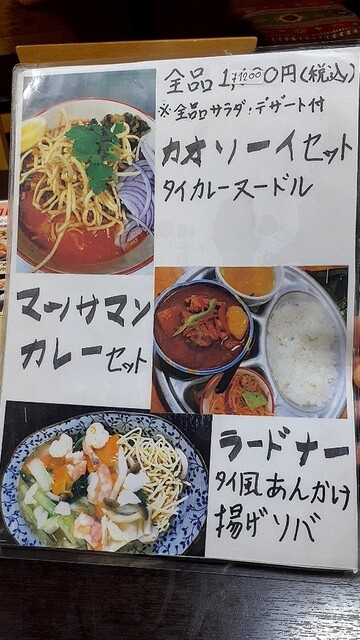 全品 1,200円(税込)
※全品サラダ・デザート付
カオソーイセット
タイカレーヌードル
マッサマン
カレーセット
ラードナー
タイ風あんかけ
揚げソバ